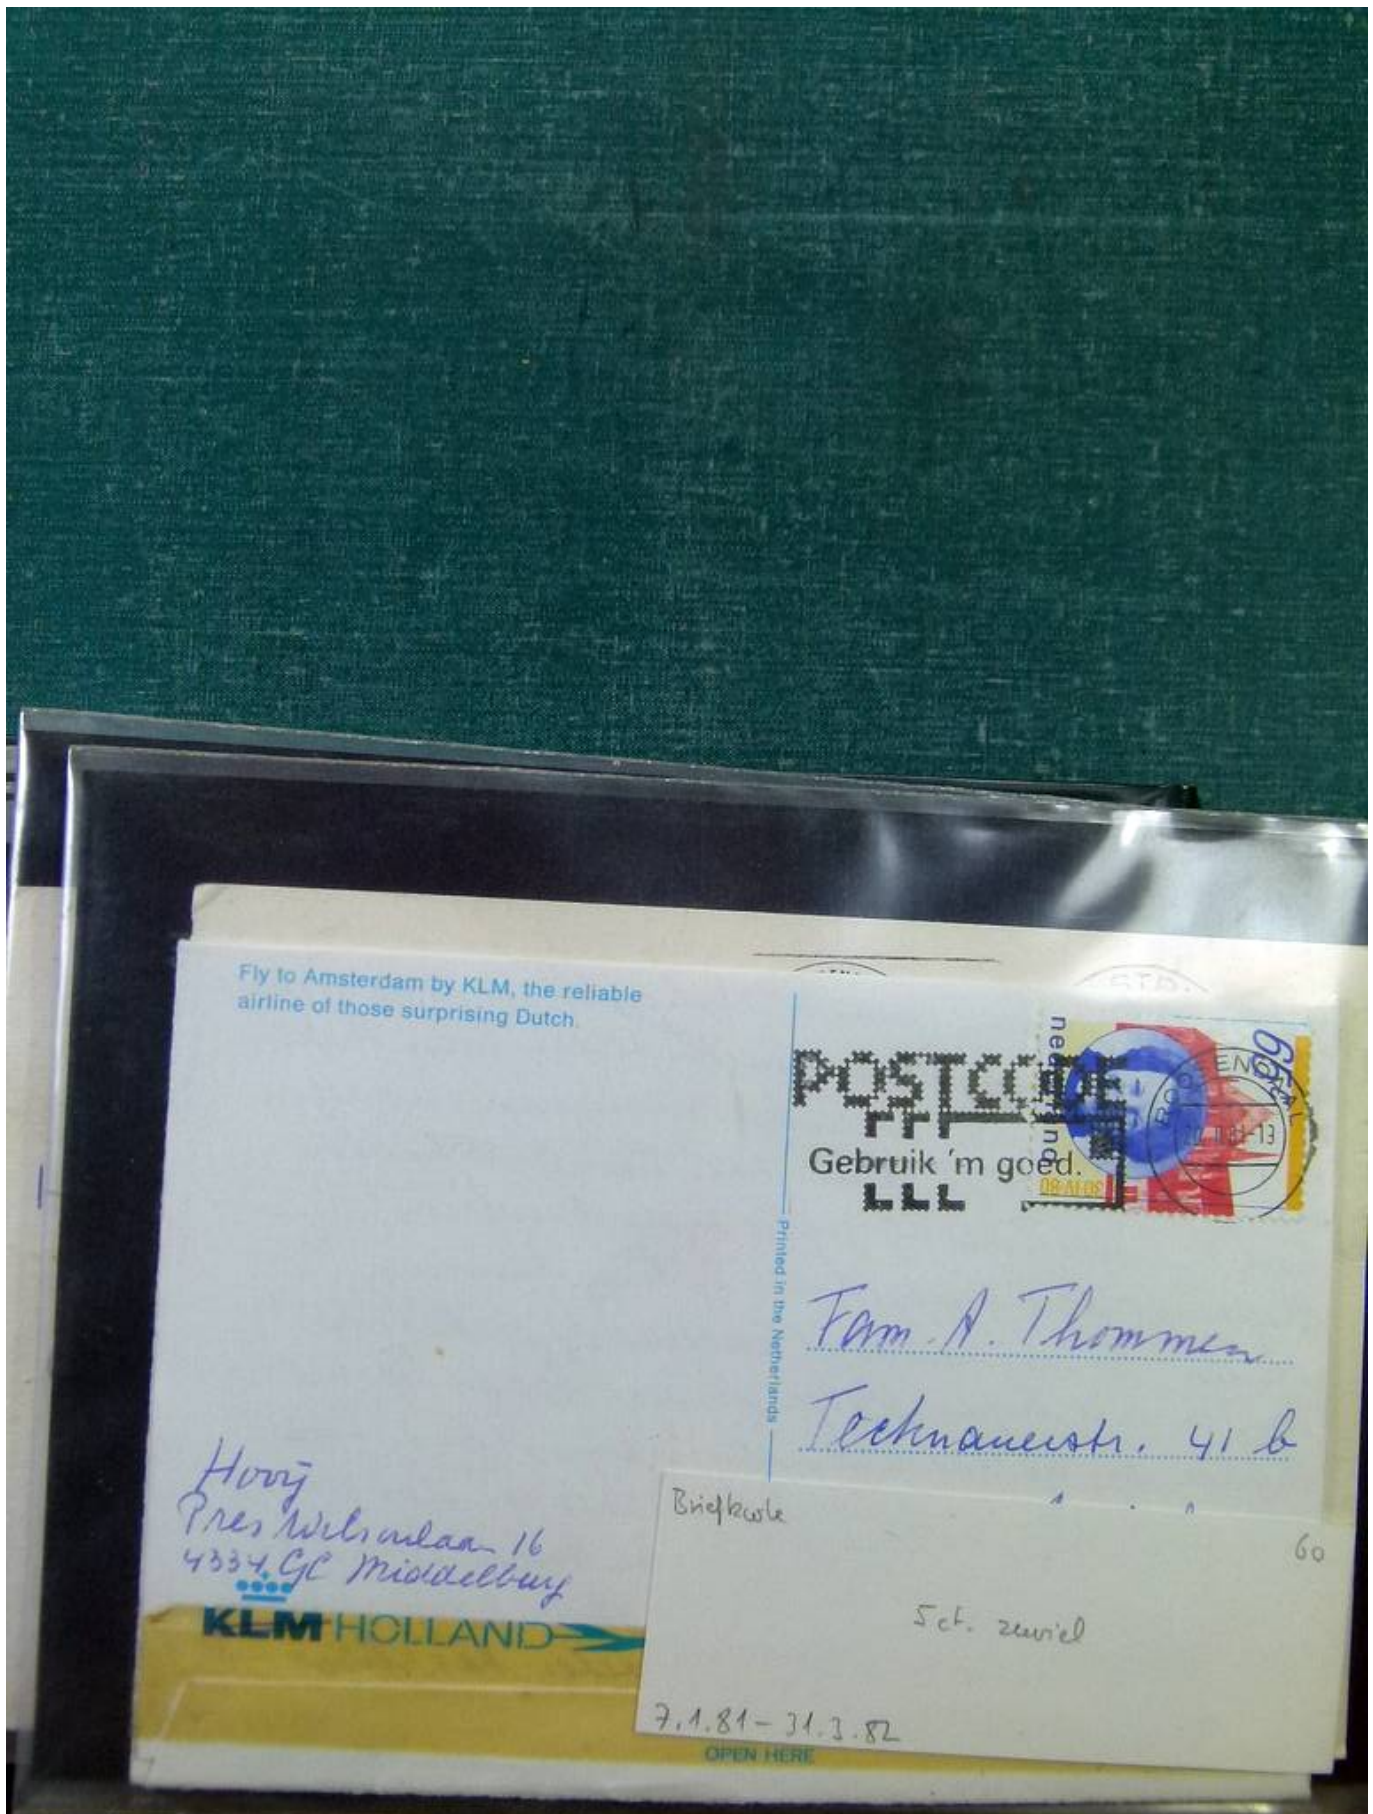 Fly to Amsterdam by KLM, the reliable
airline of those surprising Dutch.
POSTCODE
Gebruik 'm goed.
nederland
65
30·IV·80
Printed in the Netherlands
Fam. A. Thommen
Tecknauerstr. 41 b
Hooij
Pres Wilsonlaan 16
4334 GC Middelburg
KLM HOLLAND
Briefkarte
60
5 ct. zuviel
7.1.81 - 31.3.82
OPEN HERE